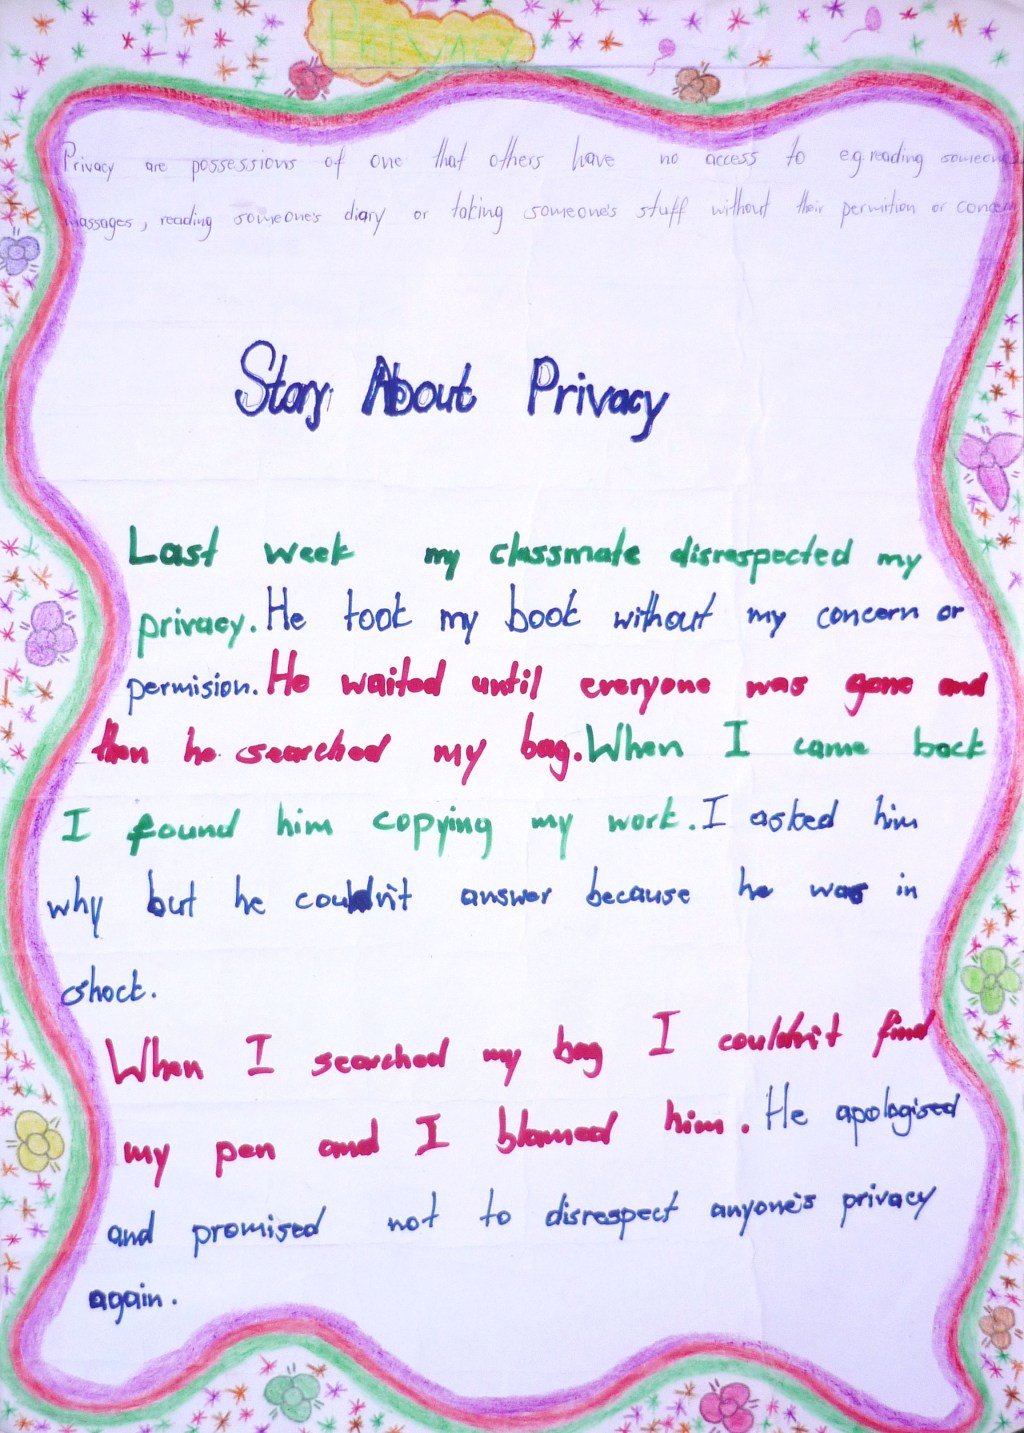 PRIVACY
Privacy are possessions of one that others have no access to e.g. reading someone's
massages, reading someone's diary or taking someone's stuff without their permition or concern
Story About Privacy
Last week my classmate disrespected my
privacy. He took my book without my concern or
permision. He waited until everyone was gone and
then he searched my bag. When I came back
I found him copying my work. I asked him
why but he couldn't answer because he was in
shock.
When I searched my bag I couldn't find
my pen and I blamed him. He apologised
and promised not to disrespect anyone's privacy
again.